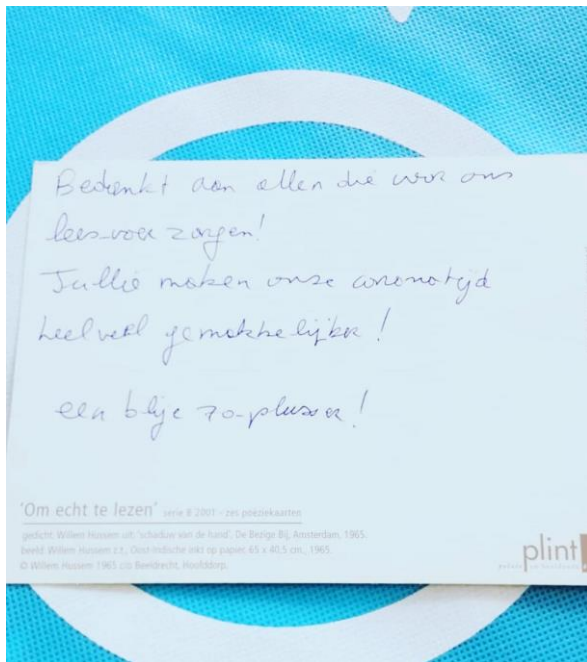 Bedankt aan allen die voor ons
leesvoer zorgen!
Jullie maken onze coronatijd
heel veel gemakkelijker!
een blije 70-plusser!
'Om echt te lezen' serie 8 2001 - zes poëziekaarten
gedicht: Willem Hussem uit: 'schaduw van de hand', De Bezige Bij, Amsterdam, 1965.
beeld: Willem Hussem z.t., Oost-Indische inkt op papier, 65 x 40,5 cm., 1965.
© Willem Hussem 1965 c/o Beeldrecht, Hoofddorp.
plint